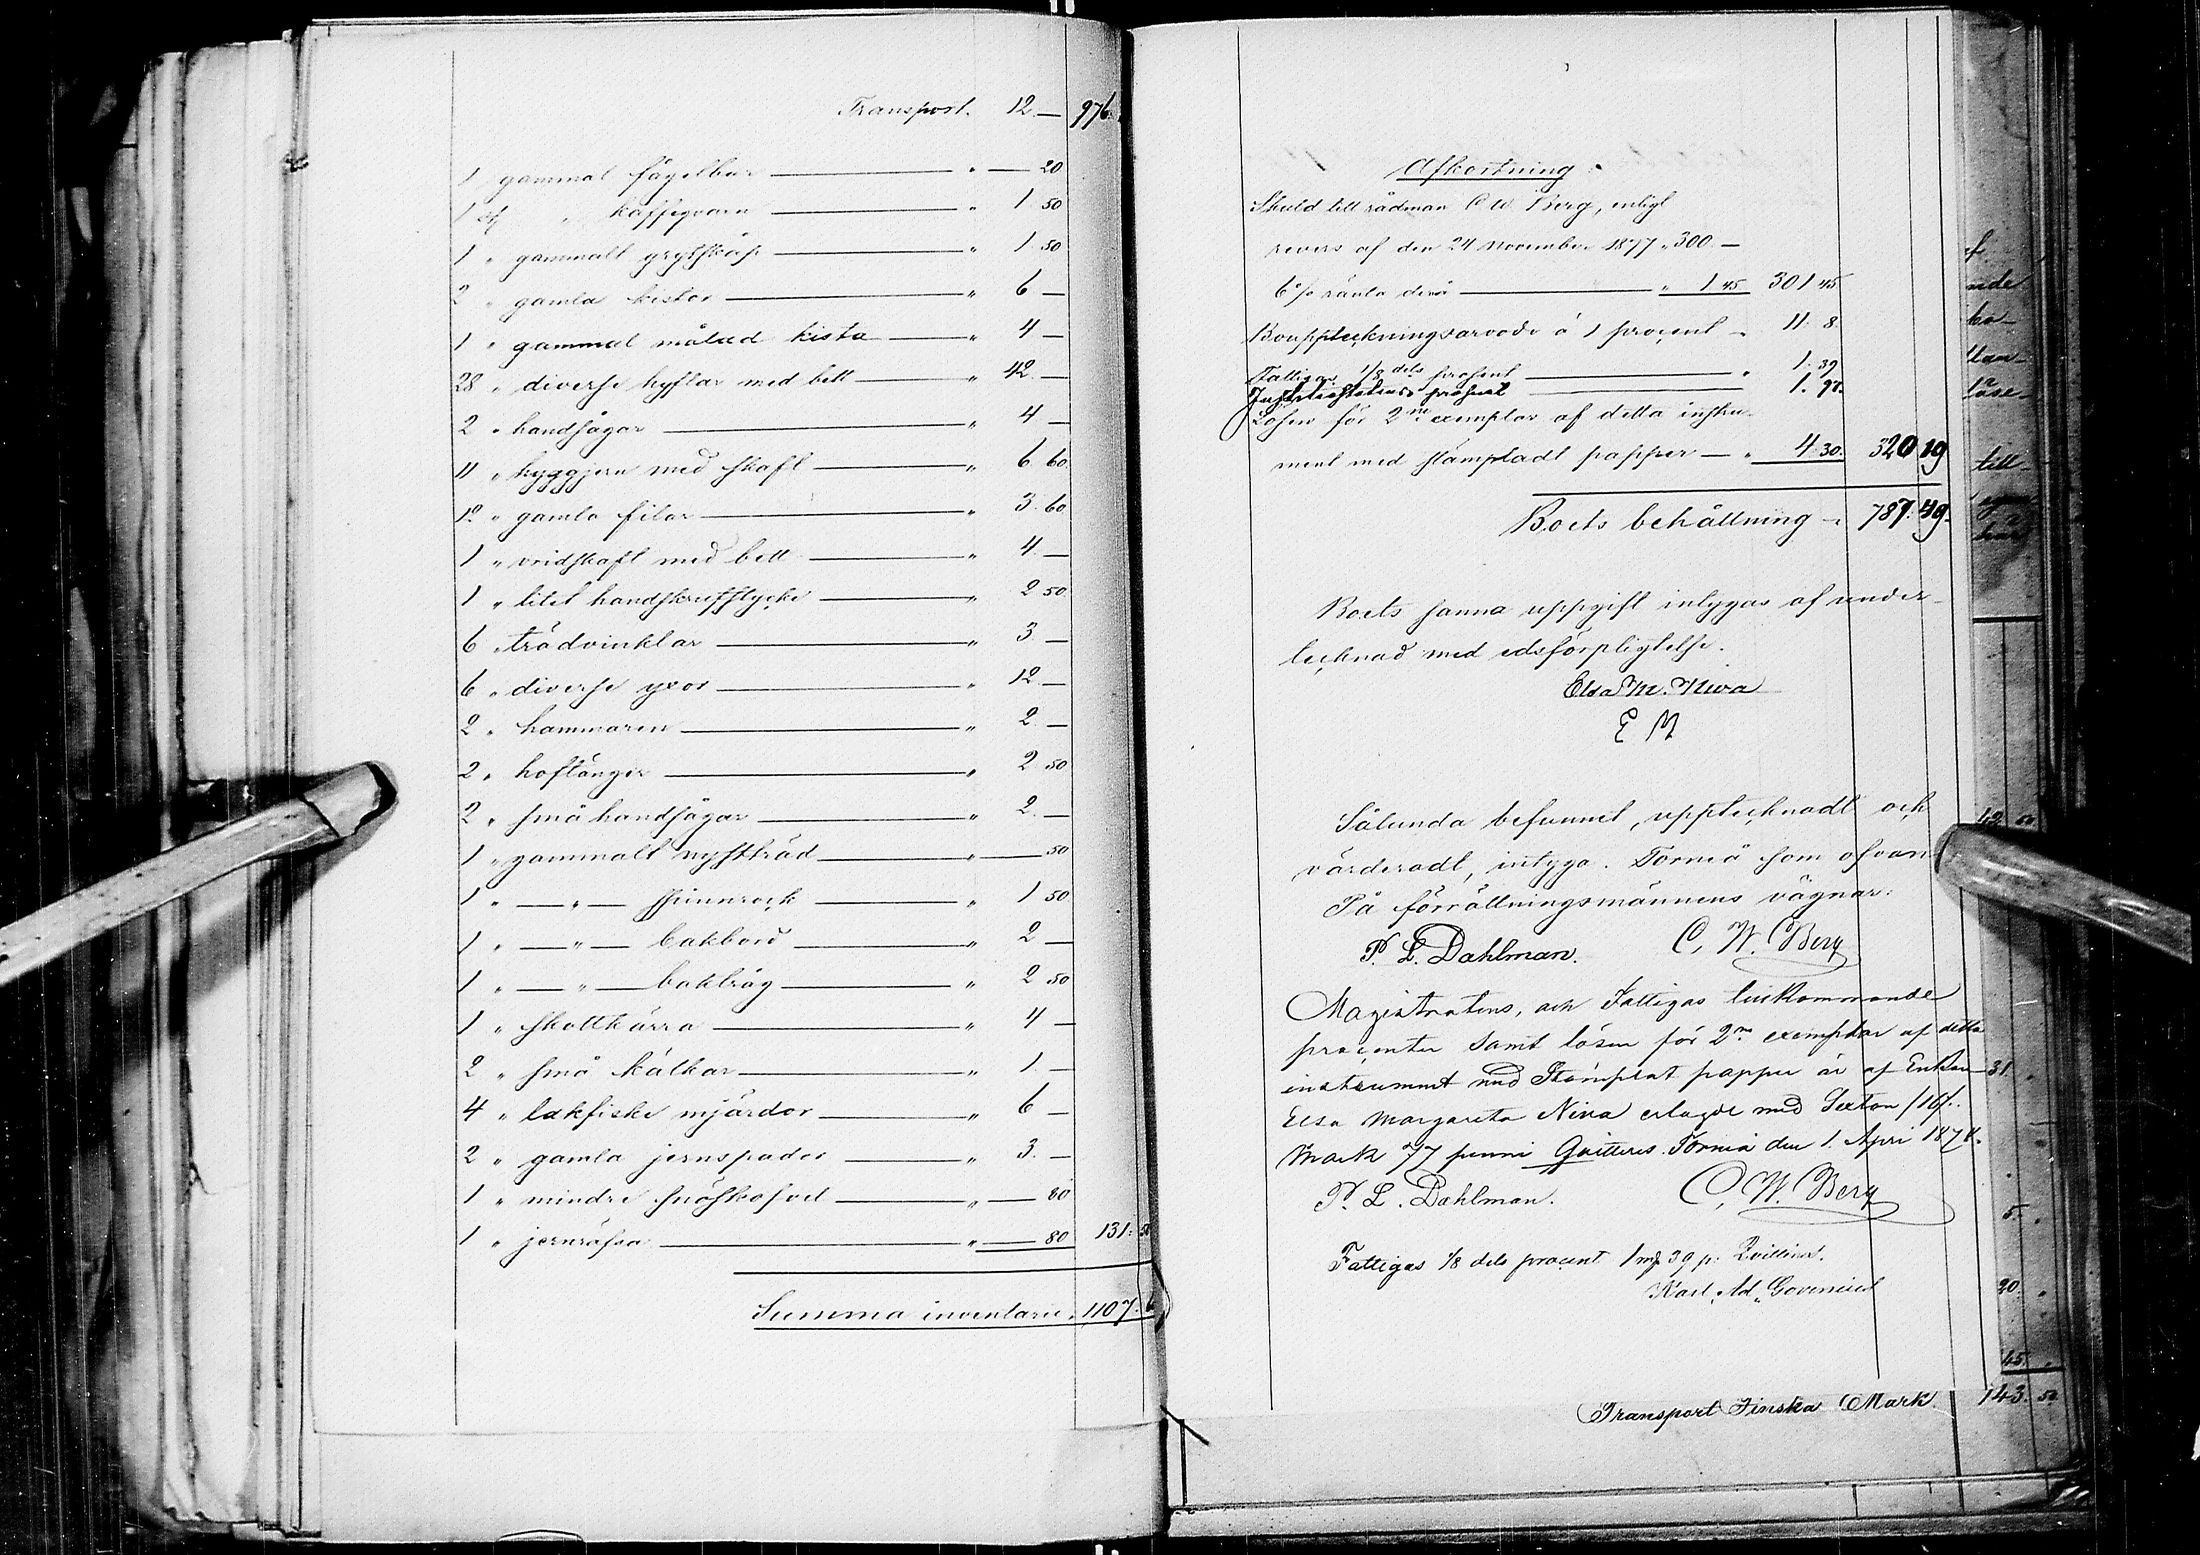 Transport. 12 — 976.
1 gammal fågelbur — " — 20
1 st " kaffeqvarn — " 1 50
1 " gammalt grytskåp — " 1 50
2 " gamla kistor — " 6 —
1 " gammal målad kista — " 4 —
28 " diverse hyflar med bett — " 42 —
2 " handsågar — " 4 —
11 " huggjern med skaft — " 6 60
12 " gamla filar — " 3 60
1 " vridskaft med bett — " 4 —
1 " litet handskrufstycke — " 2 50
6 " trädvinklar — " 3 —
6 " diverse yxor — " 12 —
2 " hammaren — " 2 —
2 " hoftänger — " 2 50
2 " små handsågar — " 2 —
1 " gammalt nystträd — " — 50
1 " — " — spinnrock — " 1 50
1 " — " — bakbord — " 2 —
1 " — " — baktråg — " 2 50
1 " skottkärra — " 4 —
2 " små kälkar — " 1 —
4 " lakfiske mjärdor — " 6 —
2 " gamla jernspador — " 3 —
1 " mindre snöskofvel — " — 80
1 " jernräfsa — " — 80 131: 50
Summa inventarie " 1107. 6
Afkortning.
Skuld till rådman C W. Berg, enligt
revers af den 24 November 1877 " 300 —
6% ränta derå — " 1 45 301 45
Bouppteckningsarvode á 1 procent " 11. 8.
Fattigas 1/8 dels procent — " 1. 39
procent — 1. 97.
Lösen för 2ne exemplar af detta instru-
ment med stämpladt papper — " 4. 30. 320 19
Boets behållning " 787. 49.
Boets sanna uppgift intygas af under-
tecknad med edsförpligtelse.
Elsa M. Niva
E M
Sålunda befunnet, upptecknadt och
värderadt, intyga. Torneå som ofvan
På förrättningsmännens vägnar:
P. L. Dahlman. C. W. Berg
Magistratens, och Fattigas tillkommande
procenter samt lösen för 2ne exemplar af detta
instrument med Stämplat papper är af Enkan
Elsa Margareta Niva erlagde med Sexton /16/.
Mark 77 penni Qvitteras. Torneå den 1. April 1878.
P. L. Dahlman. C. W. Berg
Fattigas 1/8 dels procent 1 mk 39 p. Qvitteras.
Karl Ad.
Transport Finska Mark. 143. 50
nde
till
42 50
31
5. "
20. "
45. "